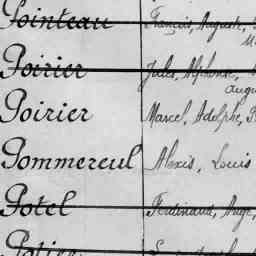 Pointeau François, Auguste,
Poirier Jules, Alphonse,
Poirier Marcel, Adolphe,
Pommereul Alexis, Louis
Potel Ferdinand, Auge,
Potier